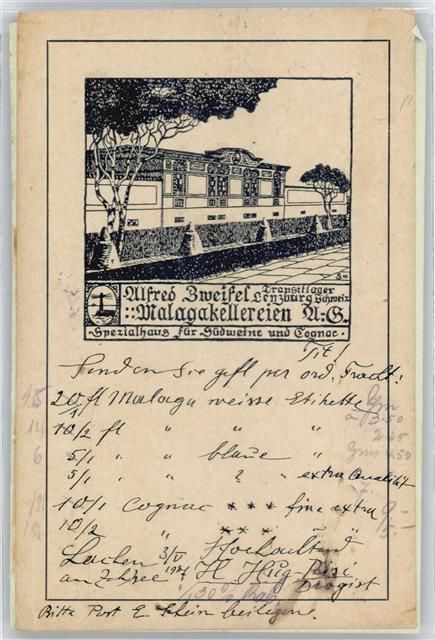 Alfred Zweifel Transitlager
Lenzburg Schweiz
:: Malagakellereien A:G.
Spezialhaus für Südweine und Cognac.
Tit!
Senden Sie gefl per ord. Fracht:
20/1 fl Malaga weisse Etikette
10/2 fl " " "
5/1 " " blaue "
5/1 " " " extra Qualität
10/1 Cognac *** fine extra
10/2 " *** " "
Hochachtend
Lachen 3/V
am Zchsee 1921 H Hüg-
Drogist
Bitte Post E Schein beilegen.